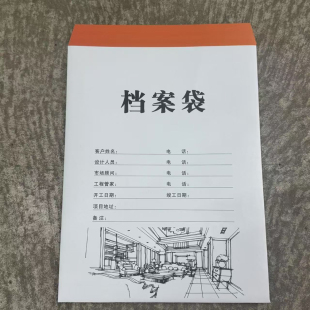 档案袋
客户姓名： 电 话：
设计人员： 电 话：
市场顾问： 电 话：
工程管家： 电 话：
开工日期： 竣工日期：
项目地址：
备 注：